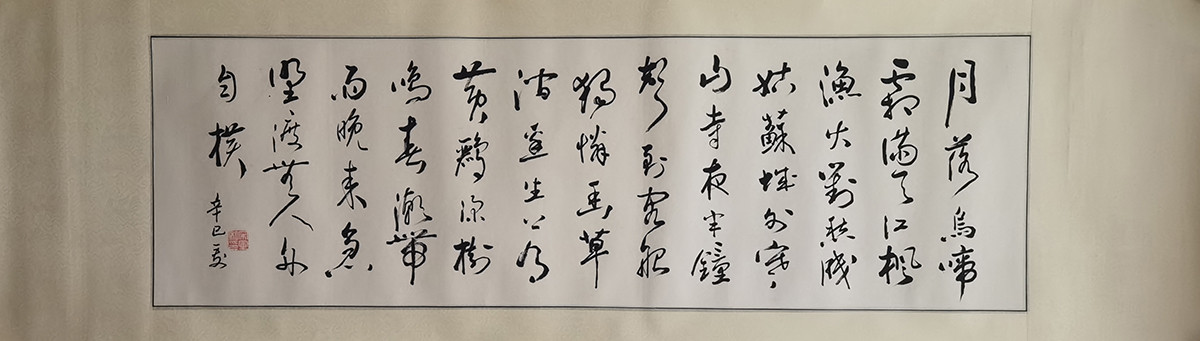 月落烏啼
霜滿天江楓
漁火對愁眠
姑蘇城外寒
山寺夜半鐘
聲到客船
獨憐幽草
澗邊生上有
黃鸝深樹
鳴春潮帶
雨晚來急
野渡無人舟
自橫
辛巳